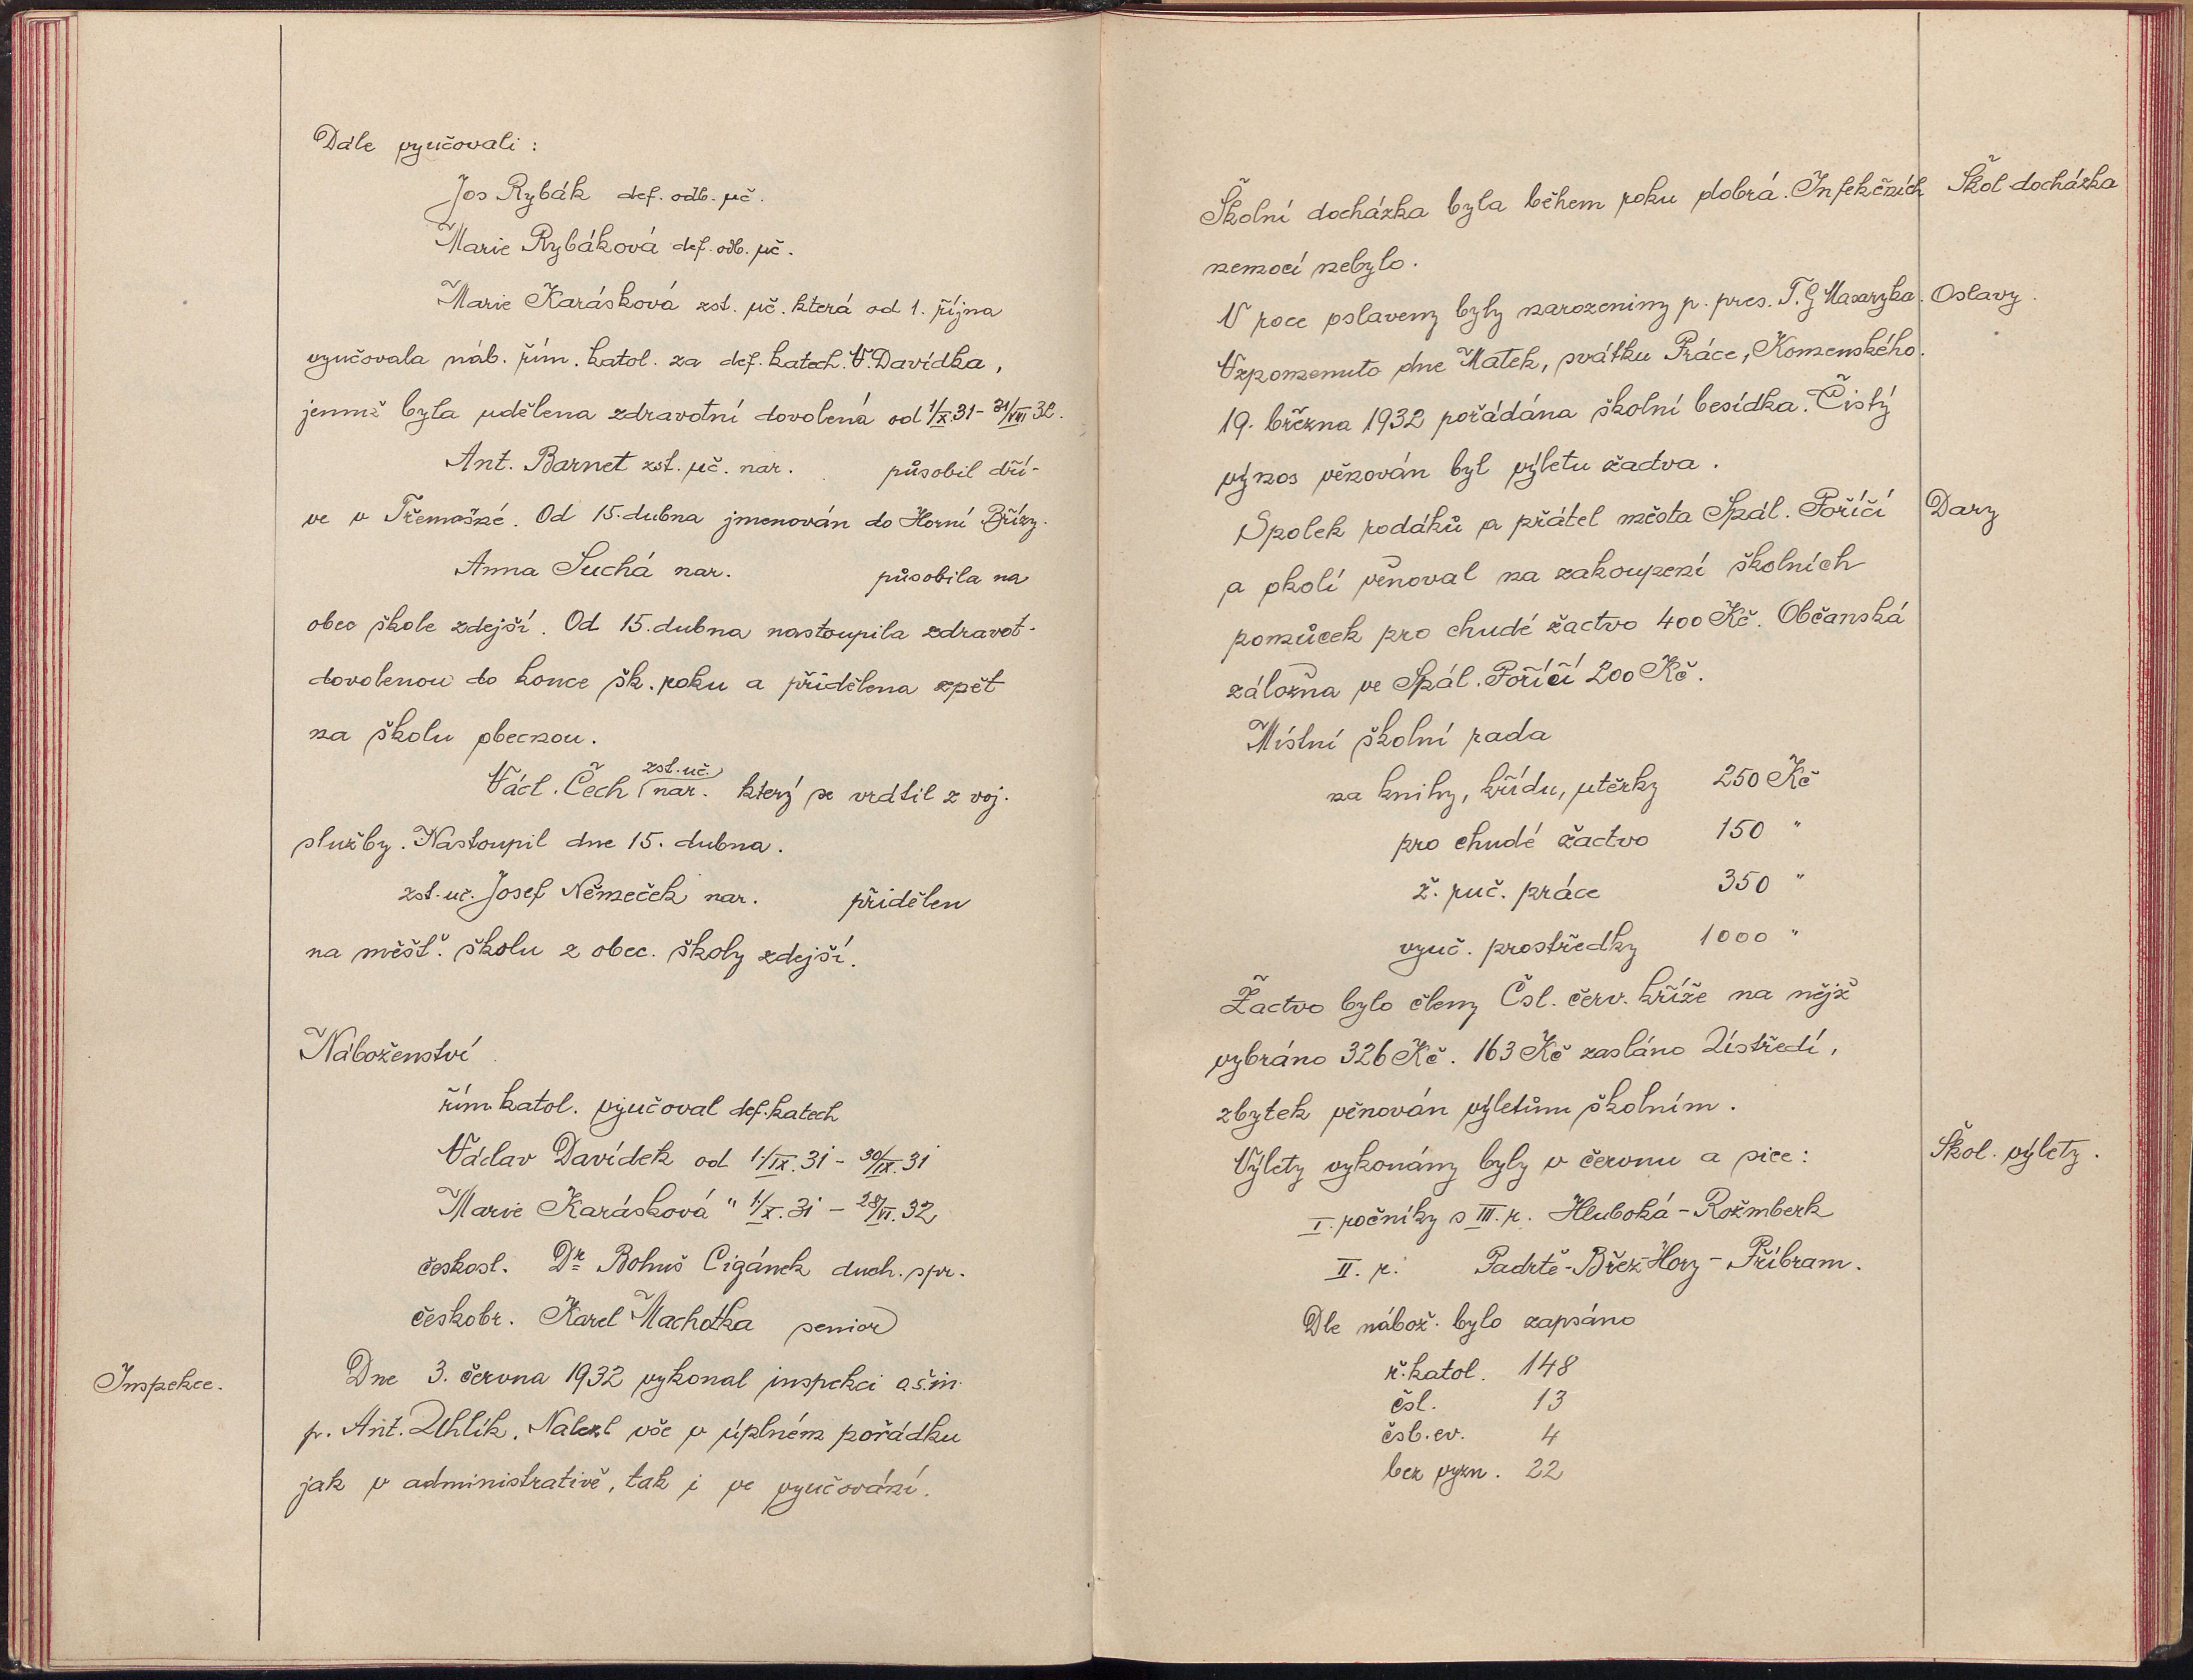 Dále vyučovali :
Jos Rybák def. odb. uč.
Marie Rybáková def. odb. uč.
Marie Karásková zst. uč. která od 1. října
vyučovala náb. řím. katol. za def. katech. V. Davídka,
jemuž byla udělena zdravotní dovolená od 1/X.31 - 31/VIII 32.
Ant. Barnet zst. uč. nar. působil dří-
ve v Třemošné. Od 15. dubna jmenován do Horní Břízy.
Anna Suchá nar. působila na
obec škole zdejší. Od 15. dubna nastoupila zdravot.
dovolenou do konce šk. roku a přidělena zpět
na školu obecnou.
zst. uč.
Václ. Čech nar. který se vrátil z voj.
služby. Nastoupil dne 15. dubna.
zst. uč. Josef Němeček nar. přidělen
na měšť. školu z obec. školy zdejší.
Náboženství
řím. katol. vyučoval def. katech
Václav Davídek od 1./IX. 31 - 30/IX. 31
Marie Karásková " 1/X. 31 - 28/VI. 32
českosl. Dr Bohuš Cigánek duch. spr.
českobr. Karel Machotka senior
Inspekce.
Dne 3. června 1932 vykonal inspekci oš.in.
p. Ant. Uhlík. Nalezl vše v úplném pořádku
jak v administrativě, tak i ve vyučování.
Školní docházka byla během roku dobrá. Infekčních
Škol docházka
nemocí nebylo.
V roce oslaveny byly narozeniny p. pres. T. G Masaryka.
Oslavy.
Vzpomenuto dne Matek, svátku Práce, Komenského.
19. března 1932 pořádána školní besídka. Čistý
výnos věnován byl výletu žactva.
Spolek rodáků a přátel města Spál. Poříčí
Dary
a okolí věnoval na zakoupení školních
pomůcek pro chudé žactvo 400 Kč. Občanská
záložna ve Spál. Poříčí 200 Kč.
Místní školní rada
na knihy, křídu, utěrky 250 Kč
pro chudé žactvo 150 "
ž. ruč. práce 350 "
vyuč. prostředky 1000 "
Žactvo bylo členy Čsl. červ. kříže na nějž
vybráno 326 Kč. 163 Kč zasláno Ústředí,
zbytek věnován výletům školním.
Výlety vykonány byly v červnu a sice:
Škol. výlety.
I. ročníky s III. r. Hluboká - Rožmberk
II. r. Padrtě - Břez Hory - Příbram.
Dle nábož. bylo zapsáno
ř. katol. 148
čsl. 13
čsb. ev. 4
bez vyzn. 22